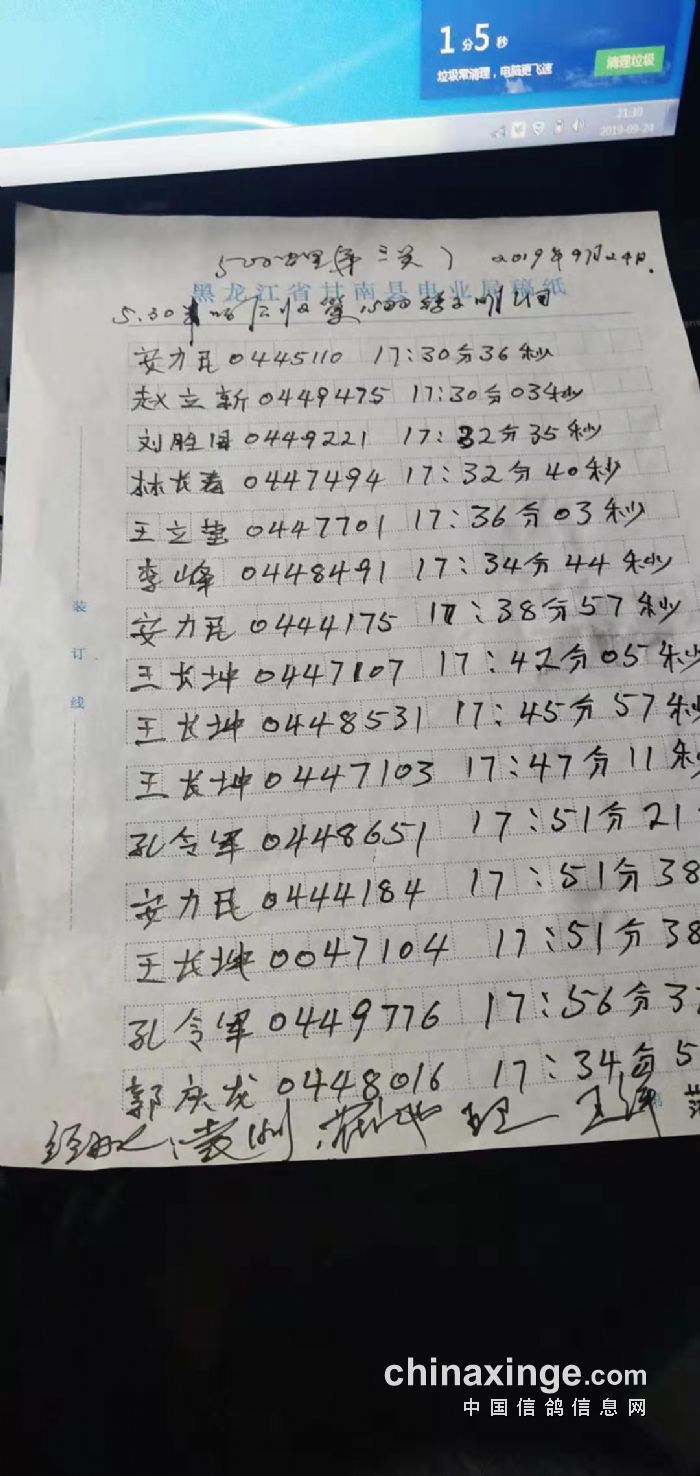 1分5秒
垃圾常清理，电脑更飞速
清理垃圾
21:30
2019-09-24
500公里(第三关) 2019年9月24日.
黑龙江省甘南县电业局稿纸
5.30
安力民 0445110 17:30分36秒
赵立新 0449475 17:30分03秒
刘胜国 0449221 17:32分35秒
林长春 0447494 17:32分40秒
王立 0447701 17:36分03秒
李峰 0448491 17:34分44秒
安力民 0444175 17:38分57秒
王长坤 0447107 17:42分05秒
王长坤 0448531 17:45分57秒
王长坤 0447103 17:47分11秒
孔令军 0448651 17:51分21
安力民 0444184 17:51分38
王长坤 0047104 17:51分38
孔令军 0449776 17:56分
郭庆龙 0448016 17:34分5
经办人:
装
订
线
chinaxinge.com
中国信鸽信息网